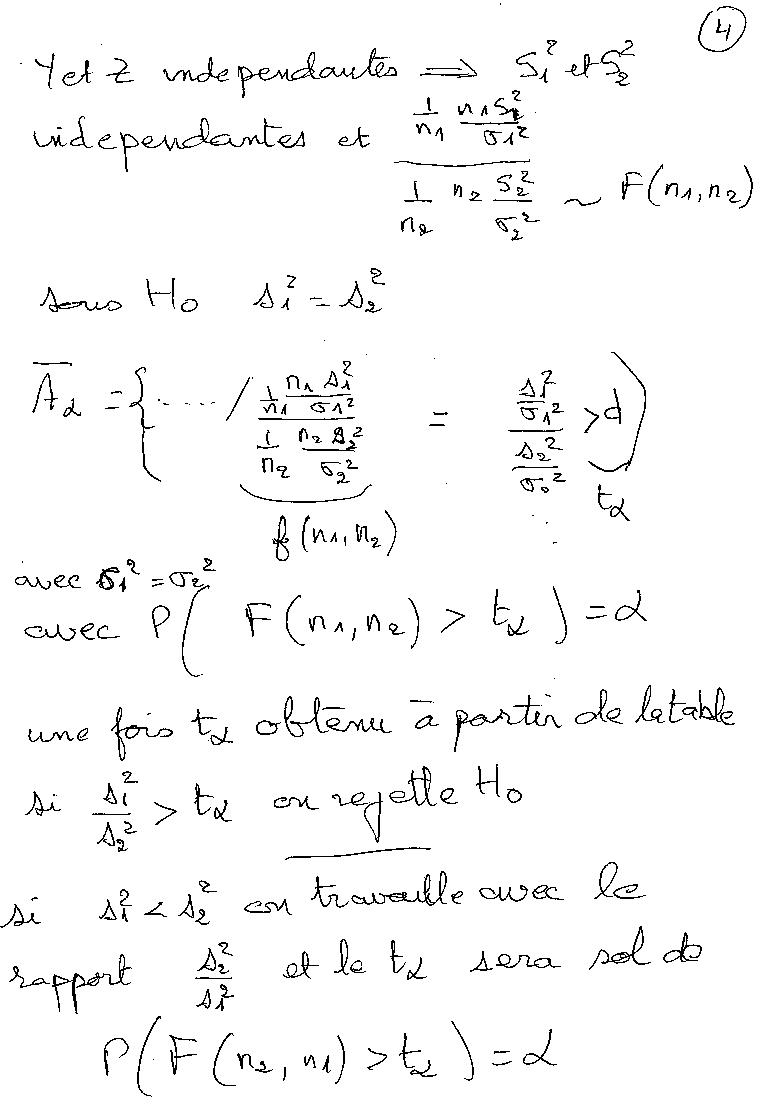 ④
Y et Z independantes ⟹ S₁² et S₂²
independantes et (1/n₁ · n₁S₁²/σ₁²) / (1/n₂ · n₂ S₂²/σ₂²) ~ F(n₁,n₂)
sous H₀ s₁² = s₂²
Ā_α = { ..... / (1/n₁ · n₁ s₁²/σ₁²) / (1/n₂ · n₂ s₂²/σ₂²) = (s₁²/σ₁²) / (s₂²/σ₂²) > d }
f(n₁,n₂) t_α
avec σ₁² = σ₂²
avec P( F(n₁,n₂) > t_α ) = α
une fois t_α obtenu à partir de la table
si s₁²/s₂² > t_α on rejette H₀
si s₁² < s₂² on travaille avec le
rapport s₂²/s₁² et le t_α sera sol de
P( F(n₂, n₁) > t_α ) = α